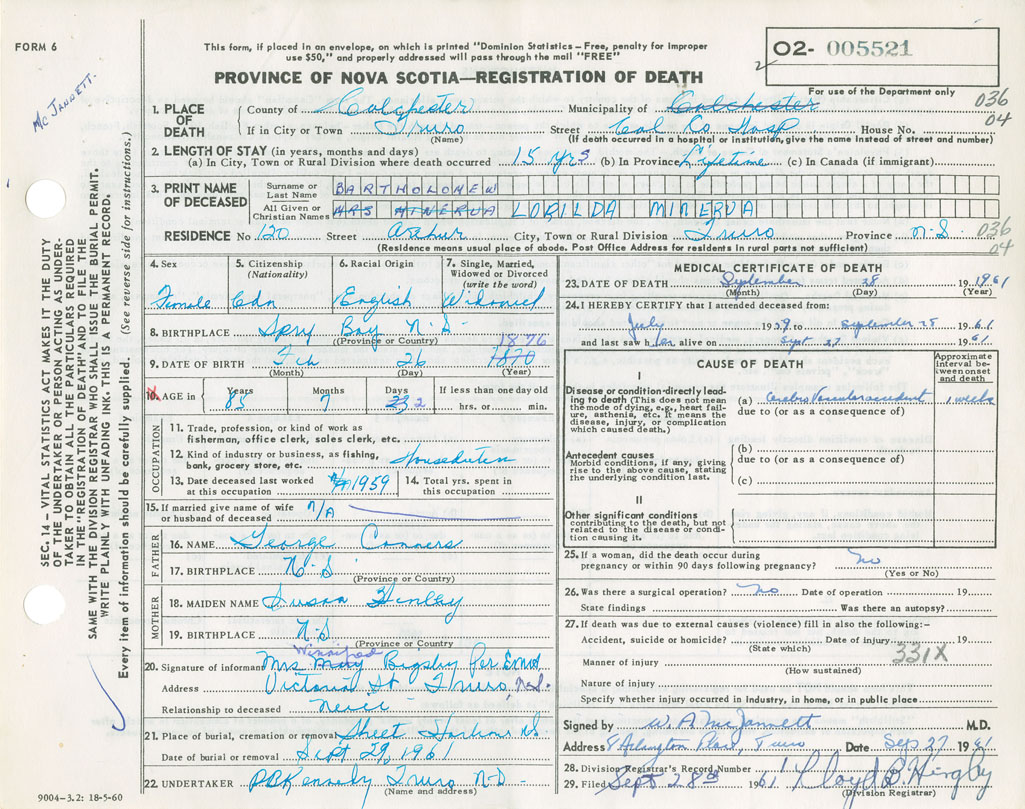 FORM 6
This form, if placed in an envelope, on which is printed "Dominion Statistics – Free, penalty for improper
use $50," and properly addressed will pass through the mail "FREE"
PROVINCE OF NOVA SCOTIA—REGISTRATION OF DEATH
O2- 005521
2
For use of the Department only
036
04
McJannett.
1. PLACE OF DEATH
County of Colchester Municipality of Colchester
If in City or Town Truro Street Col Co Hosp House No.
(Name) (If death occurred in a hospital or institution, give the name instead of street and number)
2. LENGTH OF STAY (in years, months and days)
(a) In City, Town or Rural Division where death occurred 15 yrs (b) In Province Lifetime (c) In Canada (if immigrant)
3. PRINT NAME OF DECEASED
Surname or Last Name BARTHOLOMEW
All Given or Christian Names MRS MINERVA LORILDA MINERVA
RESIDENCE No 120 Street Arthur City, Town or Rural Division Truro Province N.S. 036
04
(Residence means usual place of abode. Post Office Address for residents in rural parts not sufficient)
4. Sex Female
5. Citizenship (Nationality) Cdn
6. Racial Origin English
7. Single, Married, Widowed or Divorced (write the word) Widowed
8. BIRTHPLACE Spry Bay N.S.
(Province or Country)
1876
9. DATE OF BIRTH Feb 26 1870
(Month) (Day) (Year)
10. AGE in Years 85 Months 7 Days 2 If less than one day old
hrs. or min.
OCCUPATION
11. Trade, profession, or kind of work as
fisherman, office clerk, sales clerk, etc.
12. Kind of industry or business, as fishing,
bank, grocery store, etc. Houseduties
13. Date deceased last worked
at this occupation 1959
14. Total yrs. spent in
this occupation
15. If married give name of wife
or husband of deceased n/A
FATHER
16. NAME George Conners
17. BIRTHPLACE N.S
(Province or Country)
MOTHER
18. MAIDEN NAME Susan Henley
19. BIRTHPLACE N.S
(Province or Country)
Winnifred
20. Signature of informant Mrs May Bigsby Per
Address Victoria St Truro, N.S.
Relationship to deceased Neice
21. Place of burial, cremation or removal Sheet Harbour N.S.
Date of burial or removal Sept 29, 1961
22. UNDERTAKER Kennedy Truro N.S.
(Name and address)
9004–3.2: 18-5-60
MEDICAL CERTIFICATE OF DEATH
23. DATE OF DEATH September 28 1961
(Month) (Day) (Year)
24. I HEREBY CERTIFY that I attended deceased from:
July 1959 to September 28 1961
and last saw her alive on Sept 27 1961
CAUSE OF DEATH
Approximate interval between onset and death
I
Disease or condition directly leading to death (This does not mean the mode of dying, e.g., heart failure, asthenia, etc. It means the disease, injury, or complication which caused death.)
(a) Cerebro Vascular accident 1 week
due to (or as a consequence of)
Antecedent causes
Morbid conditions, if any, giving rise to the above cause, stating the underlying condition last.
(b)
due to (or as a consequence of)
(c)
II
Other significant conditions
contributing to the death, but not related to the disease or condition causing it.
25. If a woman, did the death occur during
pregnancy or within 90 days following pregnancy? no
(Yes or No)
26. Was there a surgical operation? no Date of operation 19
State findings Was there an autopsy?
27. If death was due to external causes (violence) fill in also the following:–
Accident, suicide or homicide? Date of injury 19
(State which)
331X
Manner of injury
(How sustained)
Nature of injury
Specify whether injury occurred in industry, in home, or in public place
Signed by W. A. McJannett M.D.
Address 8 Arlington Place, Truro Date Sep 27 1961
28. Division Registrar's Record Number
29. Filed Sept 28th 1961 Lloyd B. Hingley
(Division Registrar)
SEC. 14 – VITAL STATISTICS ACT MAKES IT THE DUTY
OF THE UNDERTAKER OR PERSON ACTING AS UNDER-
TAKER TO OBTAIN ALL THE PARTICULARS REQUIRED
IN THE "REGISTRATION OF DEATH" AND TO FILE THE
SAME WITH THE DIVISION REGISTRAR WHO SHALL ISSUE THE BURIAL PERMIT.
WRITE PLAINLY WITH UNFADING INK. THIS IS A PERMANENT RECORD.
Every item of information should be carefully supplied. (See reverse side for instructions.)